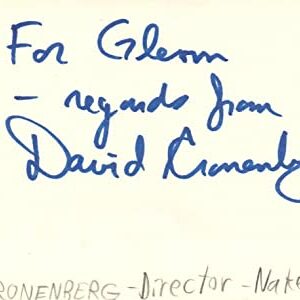 For Glenn
- regards from
David Cronenbe
RONENBERG - Director - Nake